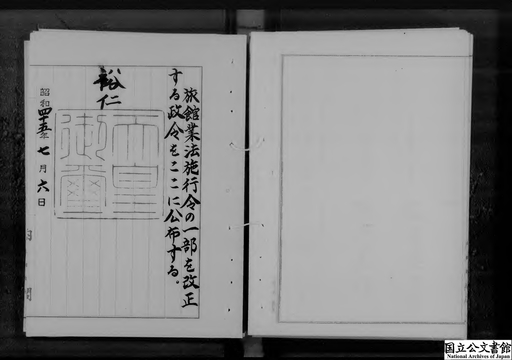 旅館業法施行令の一部を改正
する政令をここに公布する。
裕仁
天皇
御璽
昭和四十五年七月六日
国立公文書館
National Archives of Japan